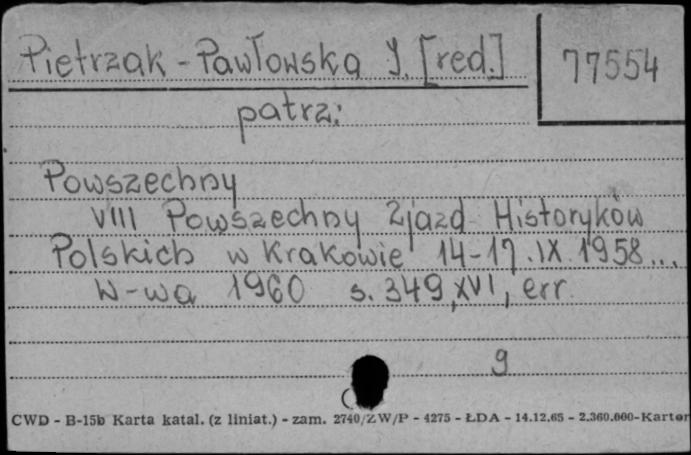 Pietrzak-Pawłowska J. [red.]
77554
patrz:
Powszechny
VIII Powszechny Zjazd Historyków
Polskich w Krakowie 14-17.IX.1958...
W-wa 1960 s. 349, XVI, err.
9
CWD - B-15b Karta katal. (z liniat.) - zam. 2740/ZW/P - 4275 - ŁDA - 14.12.65 - 2.360.000-Karton